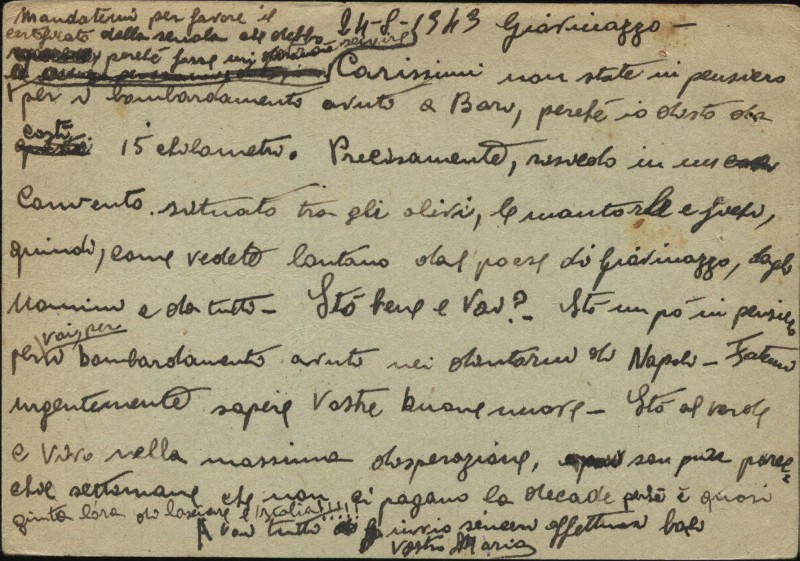 Mandatemi per favore il
certificato della scuola che detto
perché forse mi potrà servire
24-8-1943 Giovinazzo -
Carissimi non state in pensiero
per i bombardamento avuto a Bari, perché io disto da
costì 15 chilometri. Precisamente, risiedo in un
Convento situato tra gli olivi, le mandorle e fichi,
quindi, come vedete lontano dal paese di Giovinazzo, dagli
uomini e da tutti - Stò bene e Voi? - Stò un pò in pensiero
vari per
per i bombardamenti avuti nei dintorni di Napoli - Fatemi
urgentemente sapere Vostre buone nuove - Stò al verde
e vivo nella massima disperazione, son più parec=
chie settimane che non ci pagano la decade però è quasi
giunta l'ora di lasciare l'Italia!!!!!
A voi tutti invio sinceri affettuosi baci
Vostro Maria